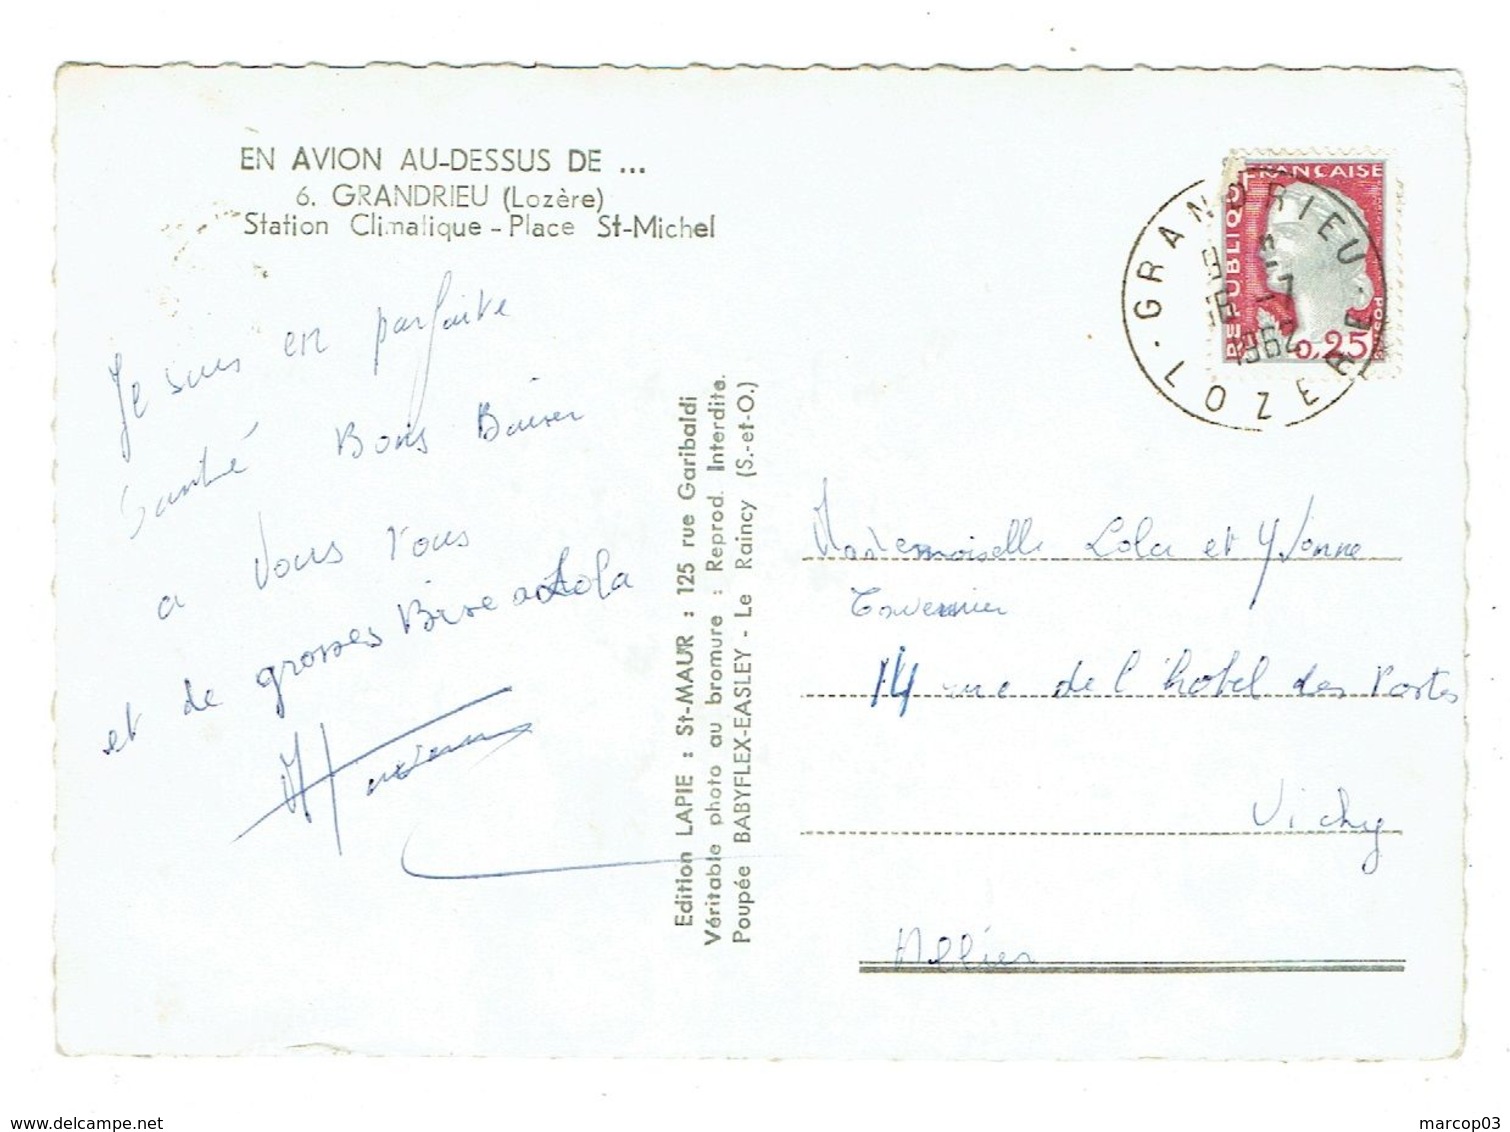 EN AVION AU-DESSUS DE ...
6. GRANDRIEU (Lozère)
Station Climatique - Place St-Michel
Je suis en parfaite
Santé Bons Baiser
a Vous Tous
et de grosses Bise a Lola
Edition LAPIE : St-MAUR : 125 rue Garibaldi
Véritable photo au bromure : Reprod. Interdite.
Poupée BABYFLEX-EASLEY - Le Raincy (S.-et-O.)
REPUBLIQUE FRANÇAISE
0,25
GRANDRIEU
16 -7
1962
LOZERE
Mademoiselle Lola et Yvonne
Tavernier
14 rue de l'hotel des Postes
Vichy
Allier
marcop03
delcampe.net